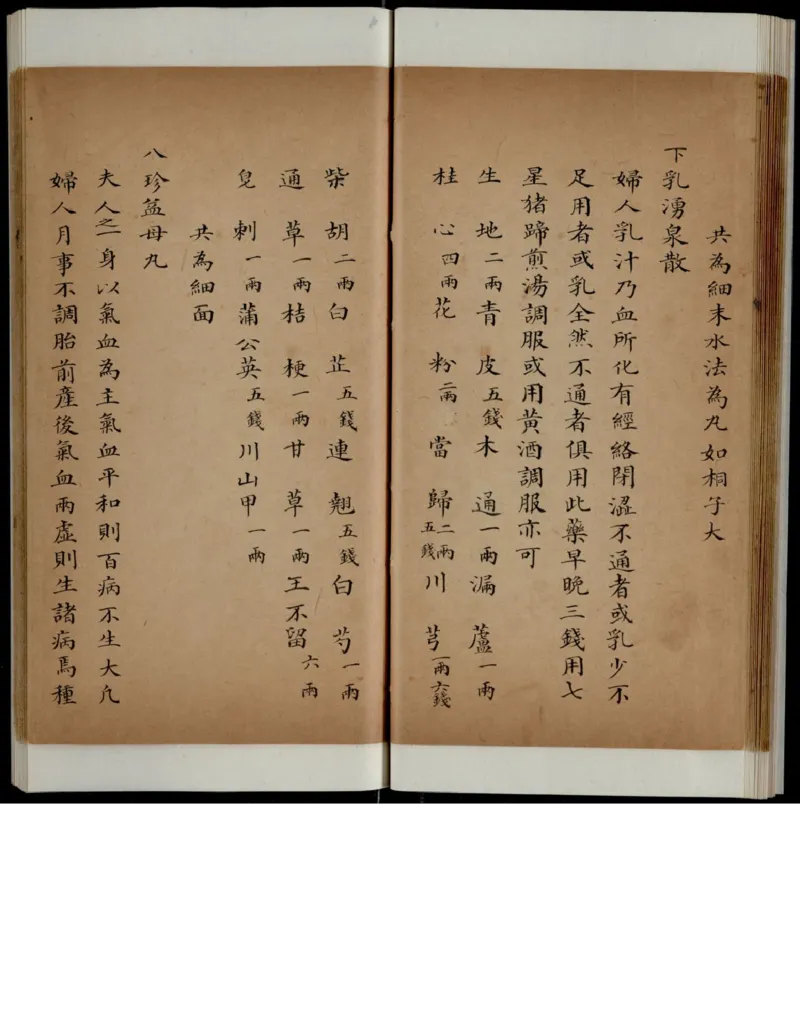 共為細末水法為丸如桐子大
下乳湧泉散
婦人乳汁乃血所化有經絡閉澁不通者或乳少不
足用者或乳全然不通者俱用此藥早晚三錢用七
星猪蹄煎湯調服或用黃酒調服亦可
生地二兩青皮五錢木通一兩漏蘆一兩
桂心四兩花粉二兩當歸二兩五錢川芎一兩六錢
柴胡二兩白芷五錢連翹五錢白芍一兩
通草一兩桔梗一兩甘草一兩王不留六兩
皂刺一兩蒲公英五錢川山甲一兩
共為細面
八珍益母丸
夫人之一身以氣血為主氣血平和則百病不生大凡
婦人月事不調胎前產後氣血兩虛則生諸病焉種